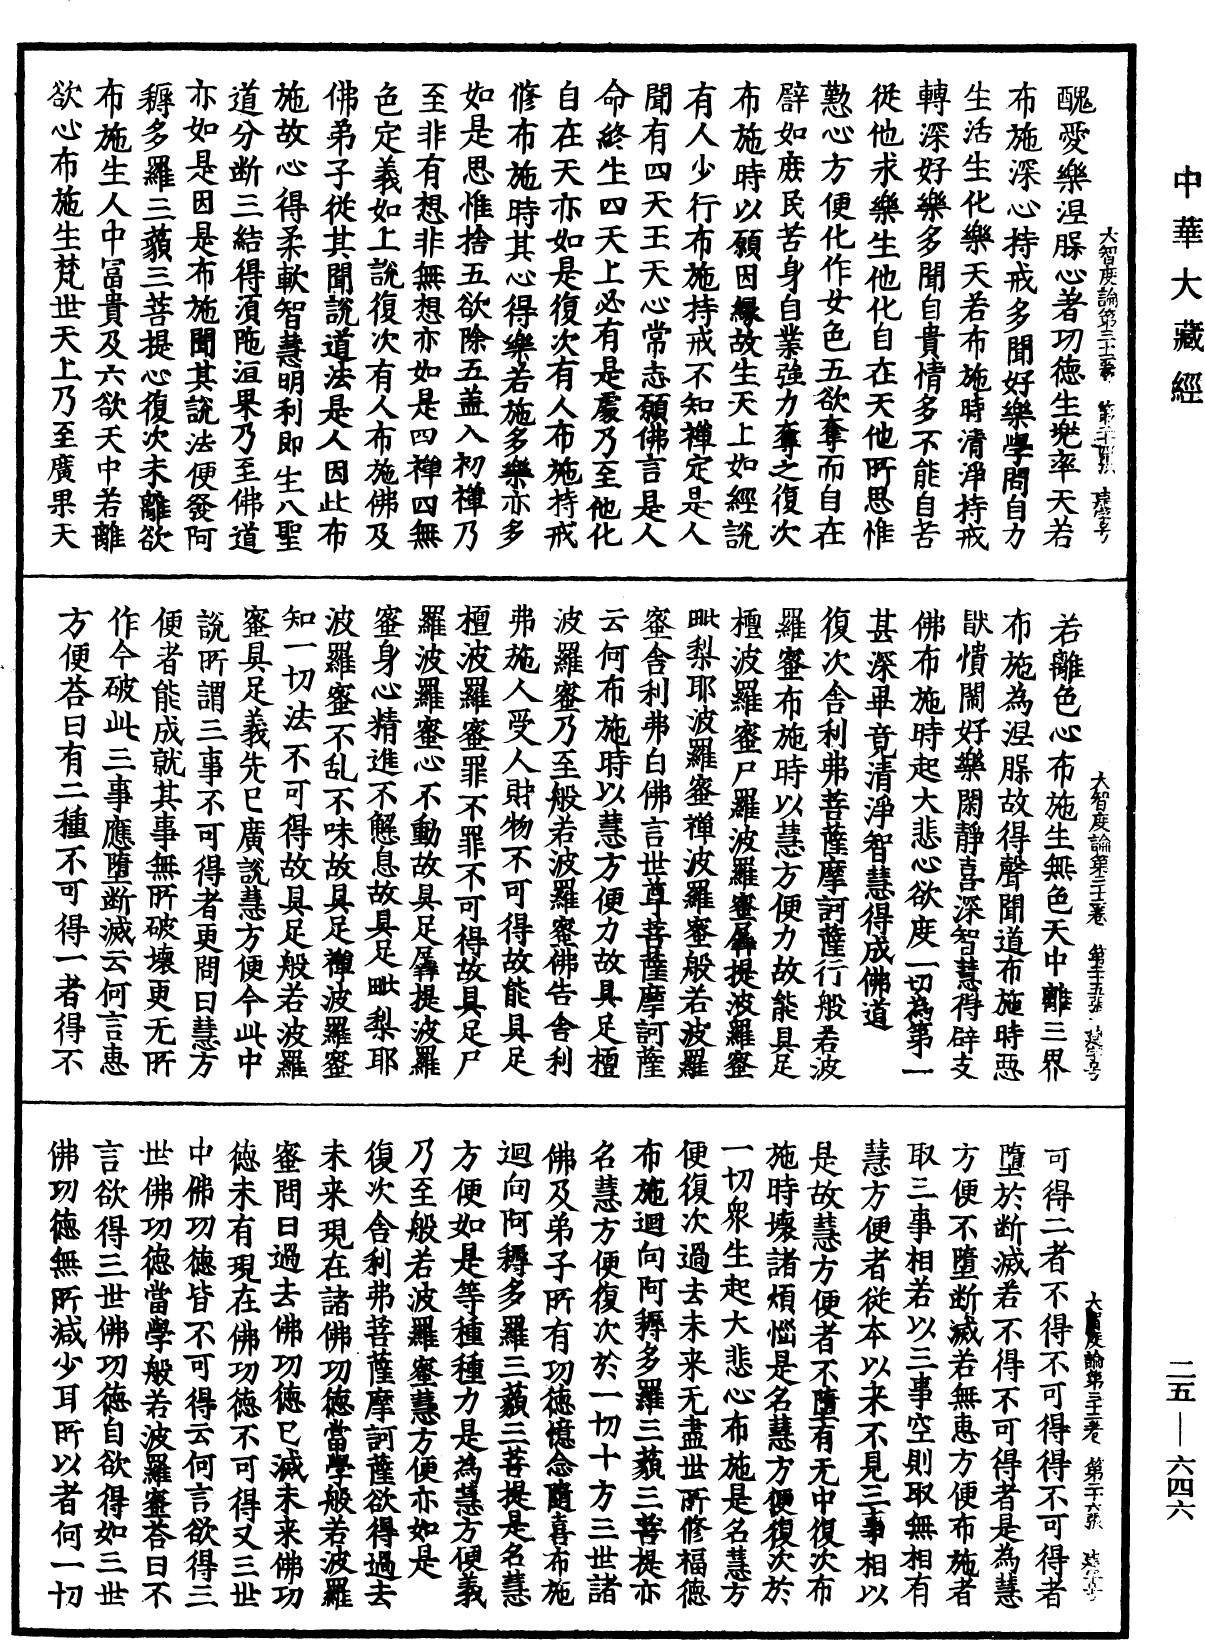 中華大藏經
大智度論第三十三卷 第二十四張
醜愛樂涅槃心著功德生兜率天若
布施深心持戒多聞好樂學問自力
生活生化樂天若布施時清淨持戒
轉深好樂多聞自貴情多不能自苦
從他求樂生他化自在天他所思惟
懃心方便化作女色五欲奪而自在
辟如庶民苦身自業強力奪之復次
布施時以願因緣故生天上如經說
有人少行布施持戒不知禪定是人
聞有四天王天心常志願佛言是人
命終生四天上必有是處乃至他化
自在天亦如是復次有人布施持戒
修布施時其心得樂若施多樂亦多
如是思惟捨五欲除五盖入初禪乃
至非有想非無想亦如是四禪四無
色定義如上說復次有人布施佛及
佛弟子從其聞說道法是人因此布
施故心得柔軟智慧明利即生八聖
道分断三結得須陁洹果乃至佛道
亦如是因是布施聞其說法便發阿
耨多羅三藐三菩提心復次未離欲
布施生人中富貴及六欲天中若離
欲心布施生梵世天上乃至廣果天
大智度論第三十三卷 第二十五張
若離色心布施生無色天中離三界
布施為涅槃故得聲聞道布施時惡
猒憒閙好樂閑靜喜深智慧得辟支
佛布施時起大悲心欲度一切為第一
甚深畢竟清淨智慧得成佛道
復次舍利弗菩薩摩訶薩行般若波
羅蜜布施時以慧方便力故能具足
檀波羅蜜尸羅波羅蜜羼提波羅蜜
毗梨耶波羅蜜禪波羅蜜般若波羅
蜜舍利弗白佛言世尊菩薩摩訶薩
云何布施時以慧方便力故具足檀
波羅蜜乃至般若波羅蜜佛告舍利
弗施人受人財物不可得故能具足
檀波羅蜜罪不罪不可得故具足尸
羅波羅蜜心不動故具足羼提波羅
蜜身心精進不懈息故具足毗梨耶
波羅蜜不乱不味故具足禪波羅蜜
知一切法不可得故具足般若波羅
蜜具足義先已廣說慧方便今此中
說所謂三事不可得者更問曰慧方
便者能成就其事無所破壞更无所
作今破此三事應墮断滅云何言惠
方便荅曰有二種不可得一者得不
大智度論第三十三卷 第二十六張
可得二者不得不可得得不可得者
墮於断滅若不得不可得者是為慧
方便不墮断滅若無惠方便布施者
取三事相若以三事空則取無相有
慧方便者從本以来不見三事相以
是故慧方便者不墮有无中復次布
施時壞諸煩惱是名慧方便復次於
一切衆生起大悲心布施是名慧方
便復次過去未来无盡世所修福德
布施迴向阿耨多羅三藐三菩提亦
名慧方便復次於一切十方三世諸
佛及弟子所有功德憶念隨喜布施
迴向阿耨多羅三藐三菩提是名慧
方便如是等種種力是為慧方便義
乃至般若波羅蜜慧方便亦如是
復次舍利弗菩薩摩訶薩欲得過去
未来現在諸佛功德當學般若波羅
蜜問曰過去佛功德已滅未来佛功
德未有現在佛功德不可得又三世
中佛功德皆不可得云何言欲得三
世佛功德當學般若波羅蜜荅曰不
言欲得三世佛功德自欲得如三世
佛功德無所減少耳所以者何一切
二五—六四六